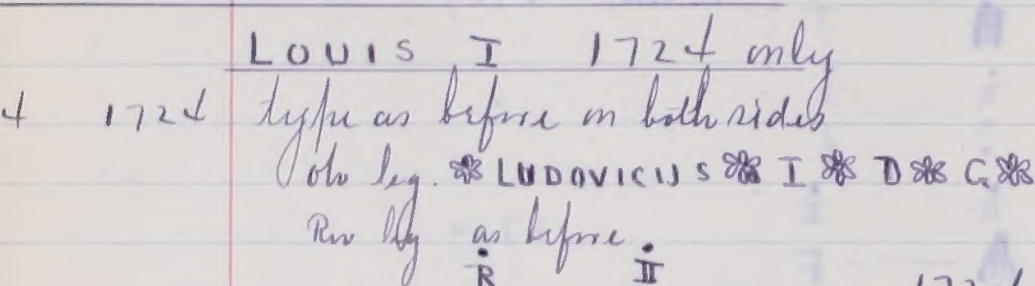 LOUIS I 1724 only
4 1724 type as before on both sides
obv leg. ❀ LUDOVICUS ❀ I ❀ D ❀ G ❀
Rev leg as before
R II
1724